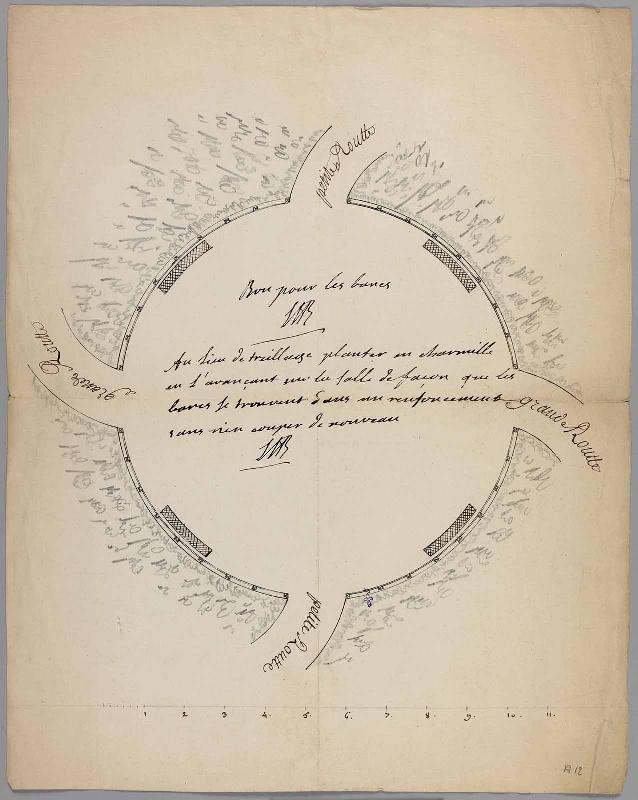 petite Routte
Bon pour les bancs
grande Routte
Au lieu de treillage planter en charmille
en s'avançant sur la salle de façon que les
bancs se trouvent dans un renfoncement
sans rien couper de nouveau
grande Routte
petite Routte
1 2 3 4. 5. 6. 7. 8. 9. 10. 11.
A 12